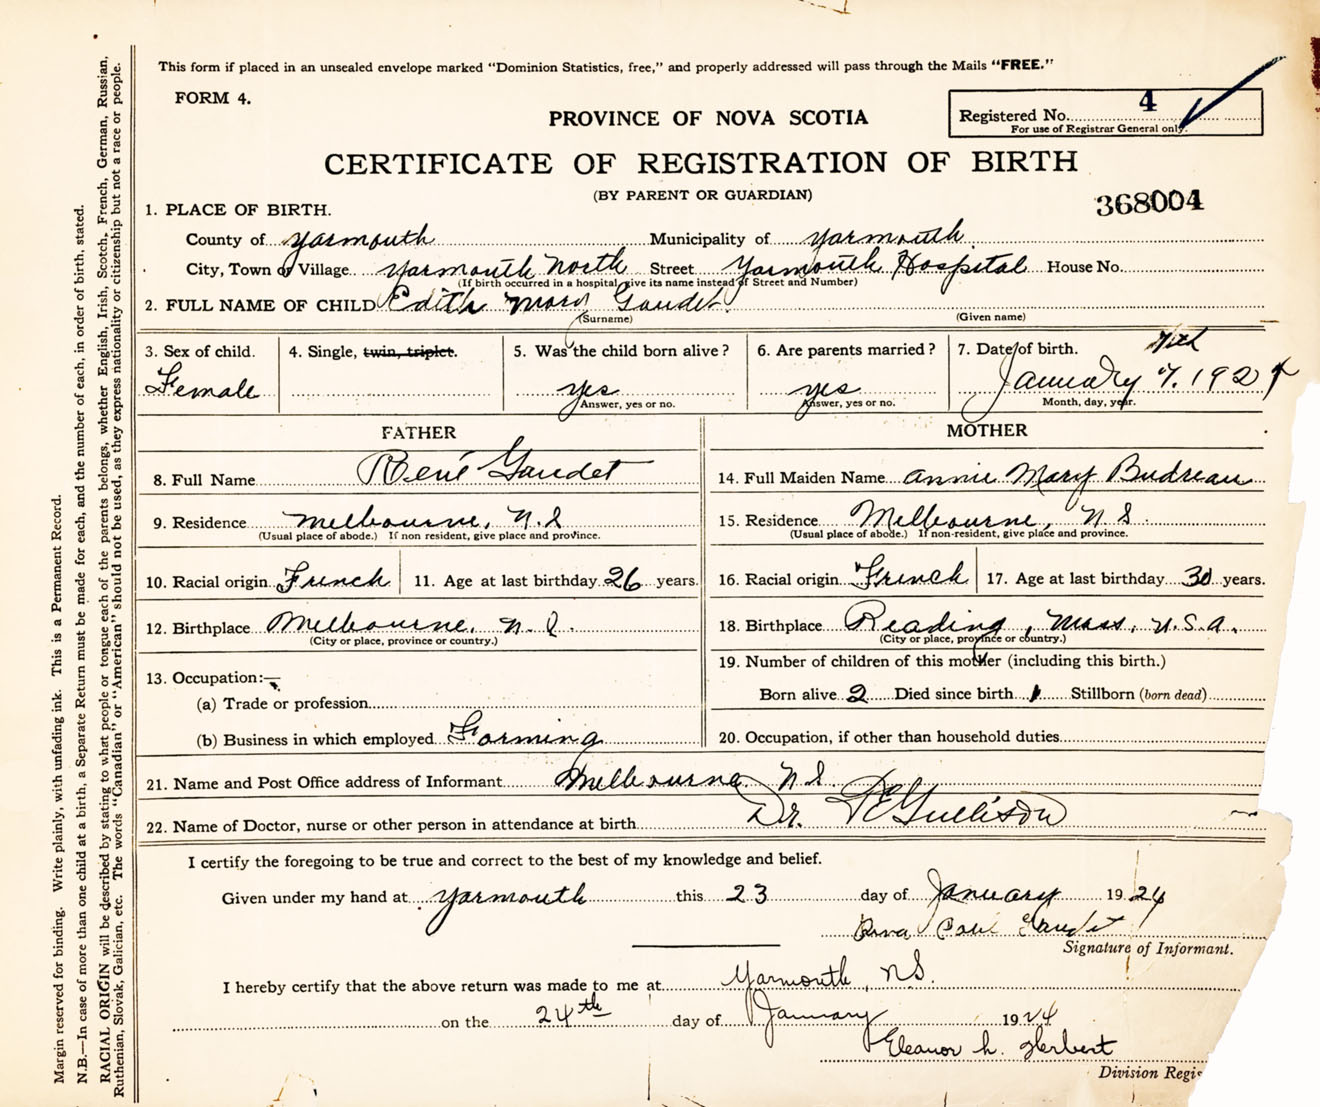 This form if placed in an unsealed envelope marked "Dominion Statistics, free," and properly addressed will pass through the Mails "FREE."
FORM 4.
PROVINCE OF NOVA SCOTIA
Registered No. 4
For use of Registrar General only.
CERTIFICATE OF REGISTRATION OF BIRTH
(BY PARENT OR GUARDIAN)
368004
1. PLACE OF BIRTH.
County of Yarmouth Municipality of Yarmouth
City, Town or Village Yarmouth North Street Yarmouth Hospital House No.
(If birth occurred in a hospital give its name instead of Street and Number)
2. FULL NAME OF CHILD Edith Mary Gaudet
(Surname) (Given name)
3. Sex of child. 4. Single, twin, triplet. 5. Was the child born alive? 6. Are parents married? 7. Date of birth. 7th
Female yes yes January 7. 192
Answer, yes or no. Answer, yes or no. Month, day, year.
FATHER MOTHER
8. Full Name René Gaudet 14. Full Maiden Name Annie Mary Budreau
9. Residence Melbourne, N.S 15. Residence Melbourne, N S
(Usual place of abode.) If non resident, give place and province. (Usual place of abode.) If non-resident, give place and province.
10. Racial origin French 11. Age at last birthday 26 years. 16. Racial origin French 17. Age at last birthday 30 years.
12. Birthplace Melbourne, N.S. 18. Birthplace Reading, Mass, U.S.A.
(City or place, province or country.) (City or place, province or country.)
13. Occupation:— 19. Number of children of this mother (including this birth.)
(a) Trade or profession Born alive 2 Died since birth 1 Stillborn (born dead)
(b) Business in which employed Farming 20. Occupation, if other than household duties
21. Name and Post Office address of Informant Melbourne N.S.
22. Name of Doctor, nurse or other person in attendance at birth Dr. Gullison
I certify the foregoing to be true and correct to the best of my knowledge and belief.
Given under my hand at Yarmouth this 23 day of January 1924
Paul Gaudet
Signature of Informant.
I hereby certify that the above return was made to me at Yarmouth, N.S.
on the 24th day of January 1924
Eleanor h. Herbert
Division Regis
Margin reserved for binding. Write plainly, with unfading ink. This is a Permanent Record.
N.B.—In case of more than one child at a birth, a Separate Return must be made for each, and the number of each, in order of birth, stated.
RACIAL ORIGIN will be described by stating to what people or tongue each of the parents belongs, whether English, Irish, Scotch, French, German, Russian,
Ruthenian, Slovak, Galician, etc. The words "Canadian" or "American" should not be used, as they express nationality or citizenship but not a race or people.